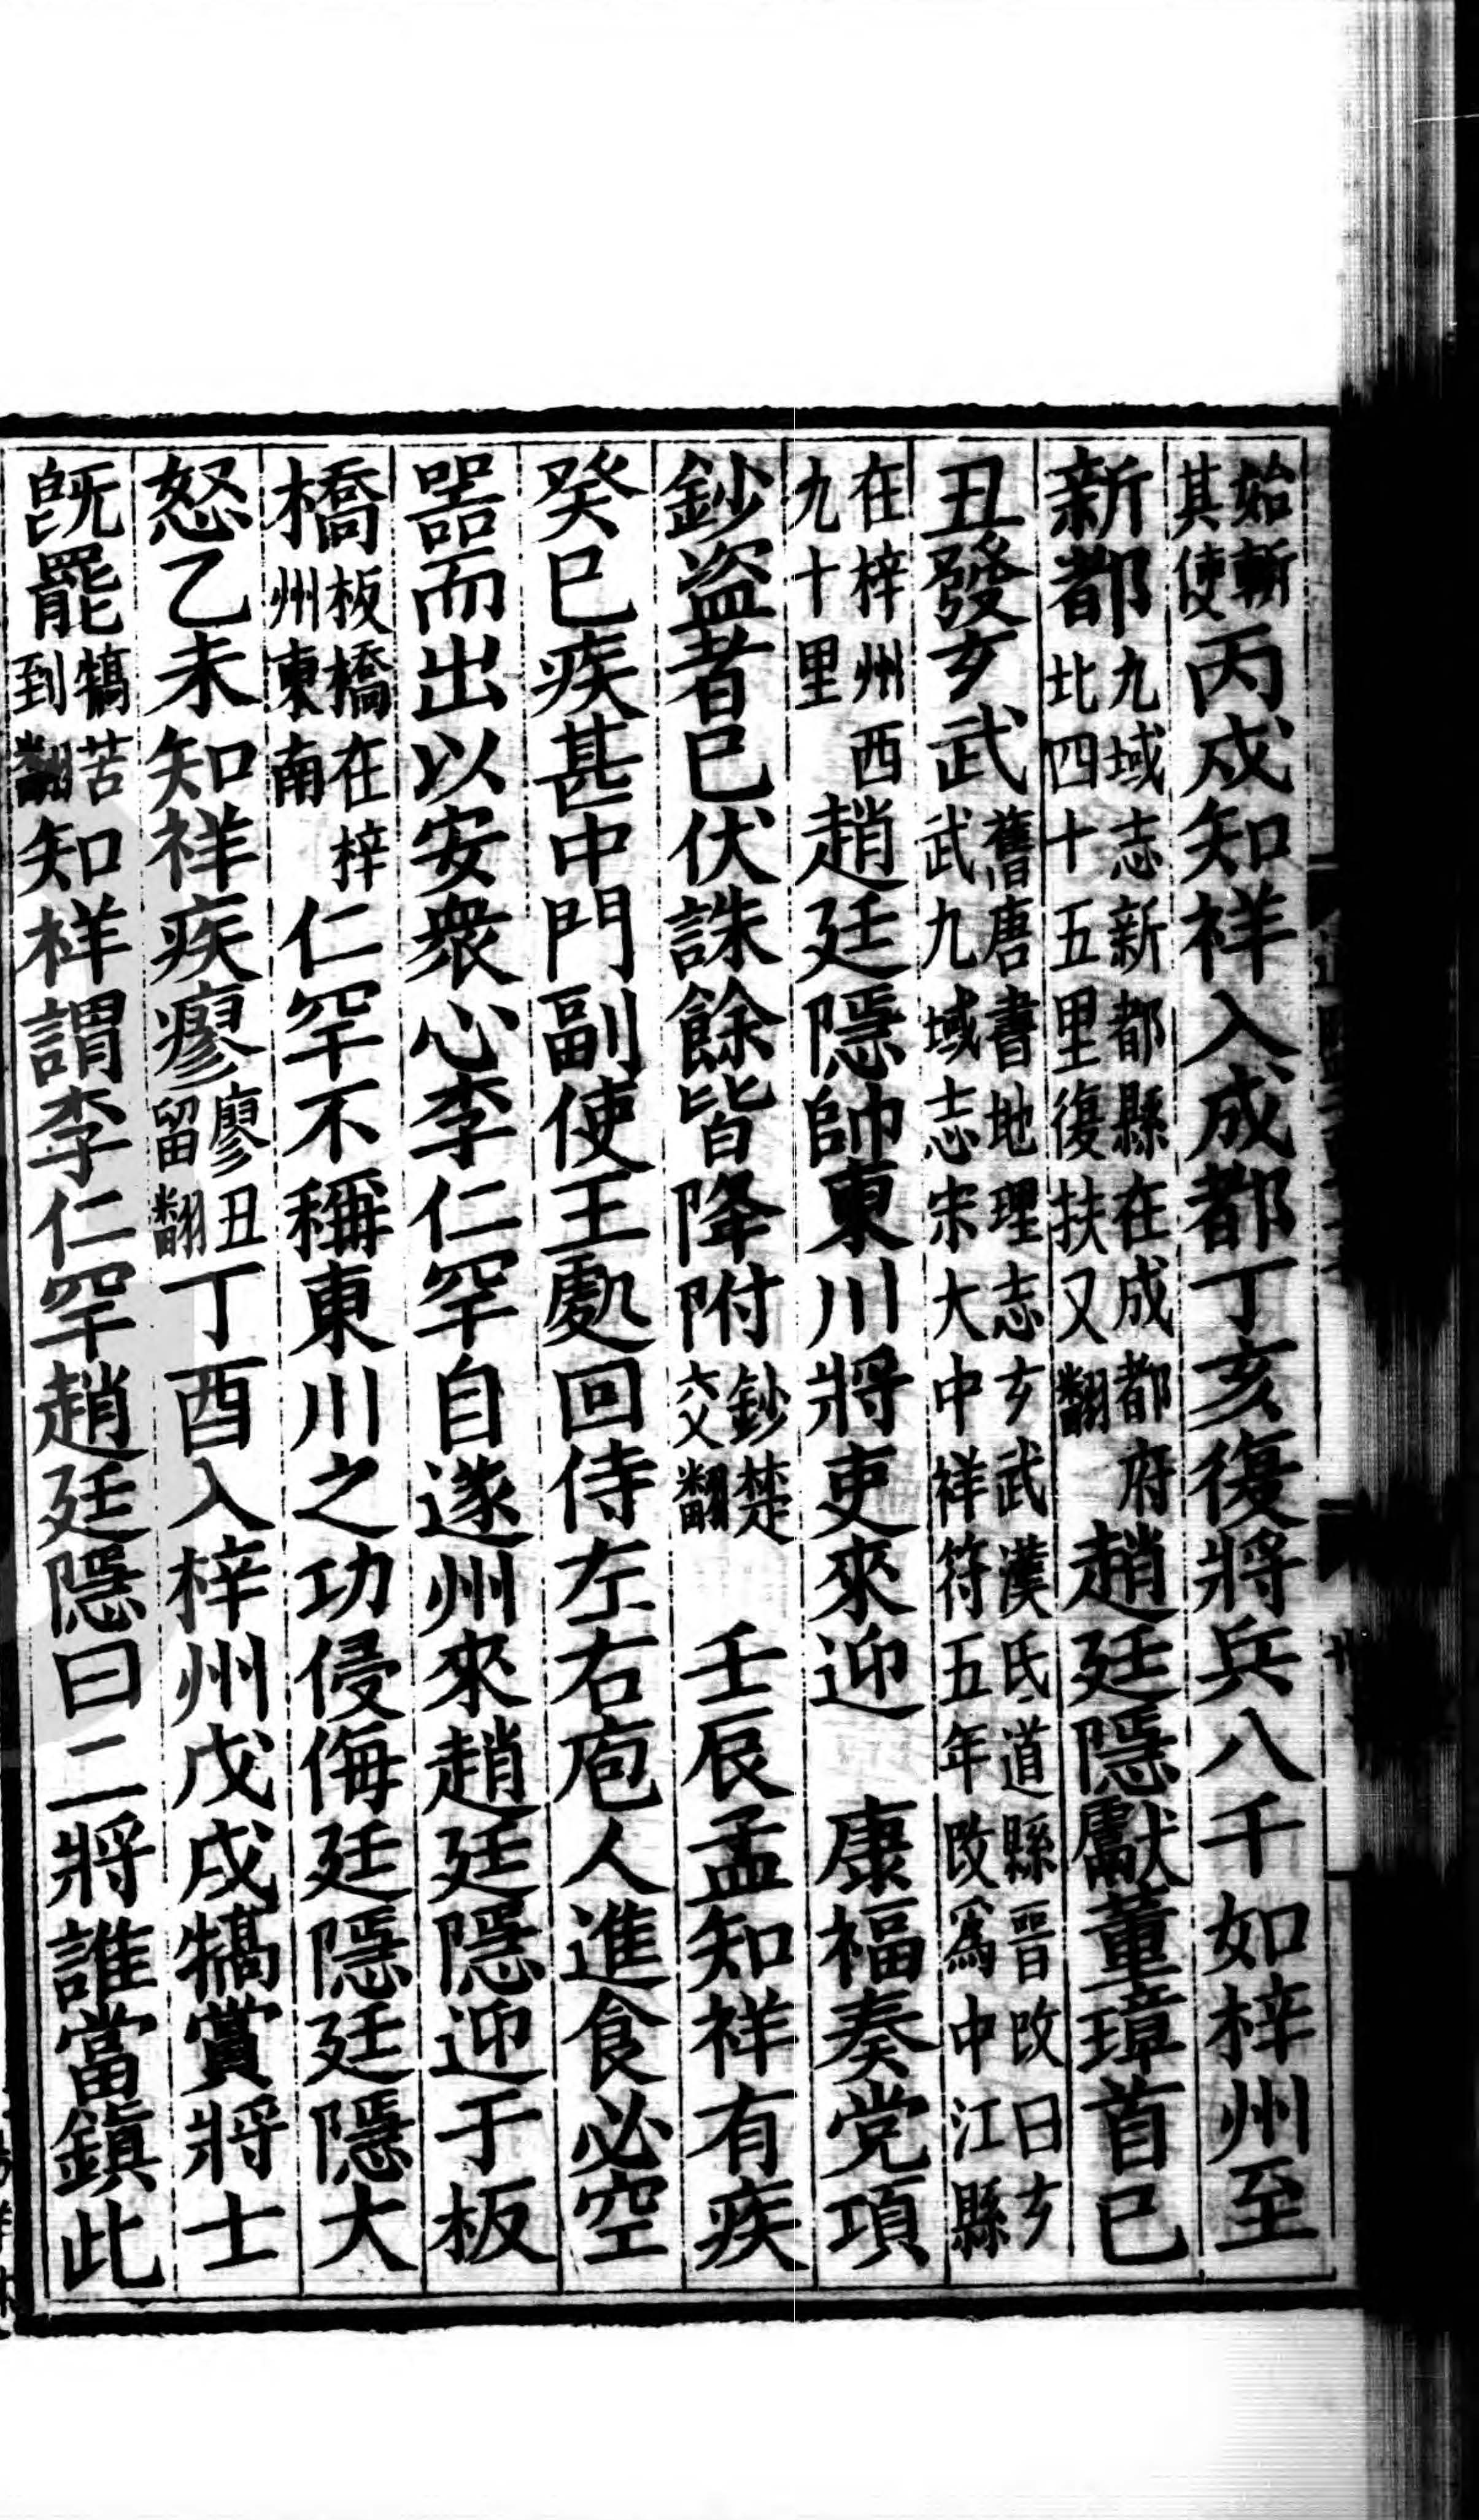 始斬其使丙戌知祥入成都丁亥復將兵八千如梓州至
新都九域志新都縣在成都府北四十五里復扶又翻趙廷隱獻董璋首已
丑發玄武舊唐書地理志玄武漢氐道縣晉改曰玄武九域志宋大中祥符五年改爲中江縣
在梓州西九十里趙廷隱帥東川將吏來迎　康福奏党項
鈔盜者已伏誅餘皆降附鈔楚交翻　壬辰孟知祥有疾
癸巳疾甚中門副使王處回侍左右庖人進食必空
器而出以安衆心李仁罕自遂州來趙廷隱迎于板
橋板橋在梓州東南仁罕不稱東川之功侵侮廷隱廷隱大
怒乙未知祥疾瘳瘳丑留翻丁酉入梓州戊戌犒賞將士
旣罷犒苦到翻知祥謂李仁罕趙廷隱曰二將誰當鎭此